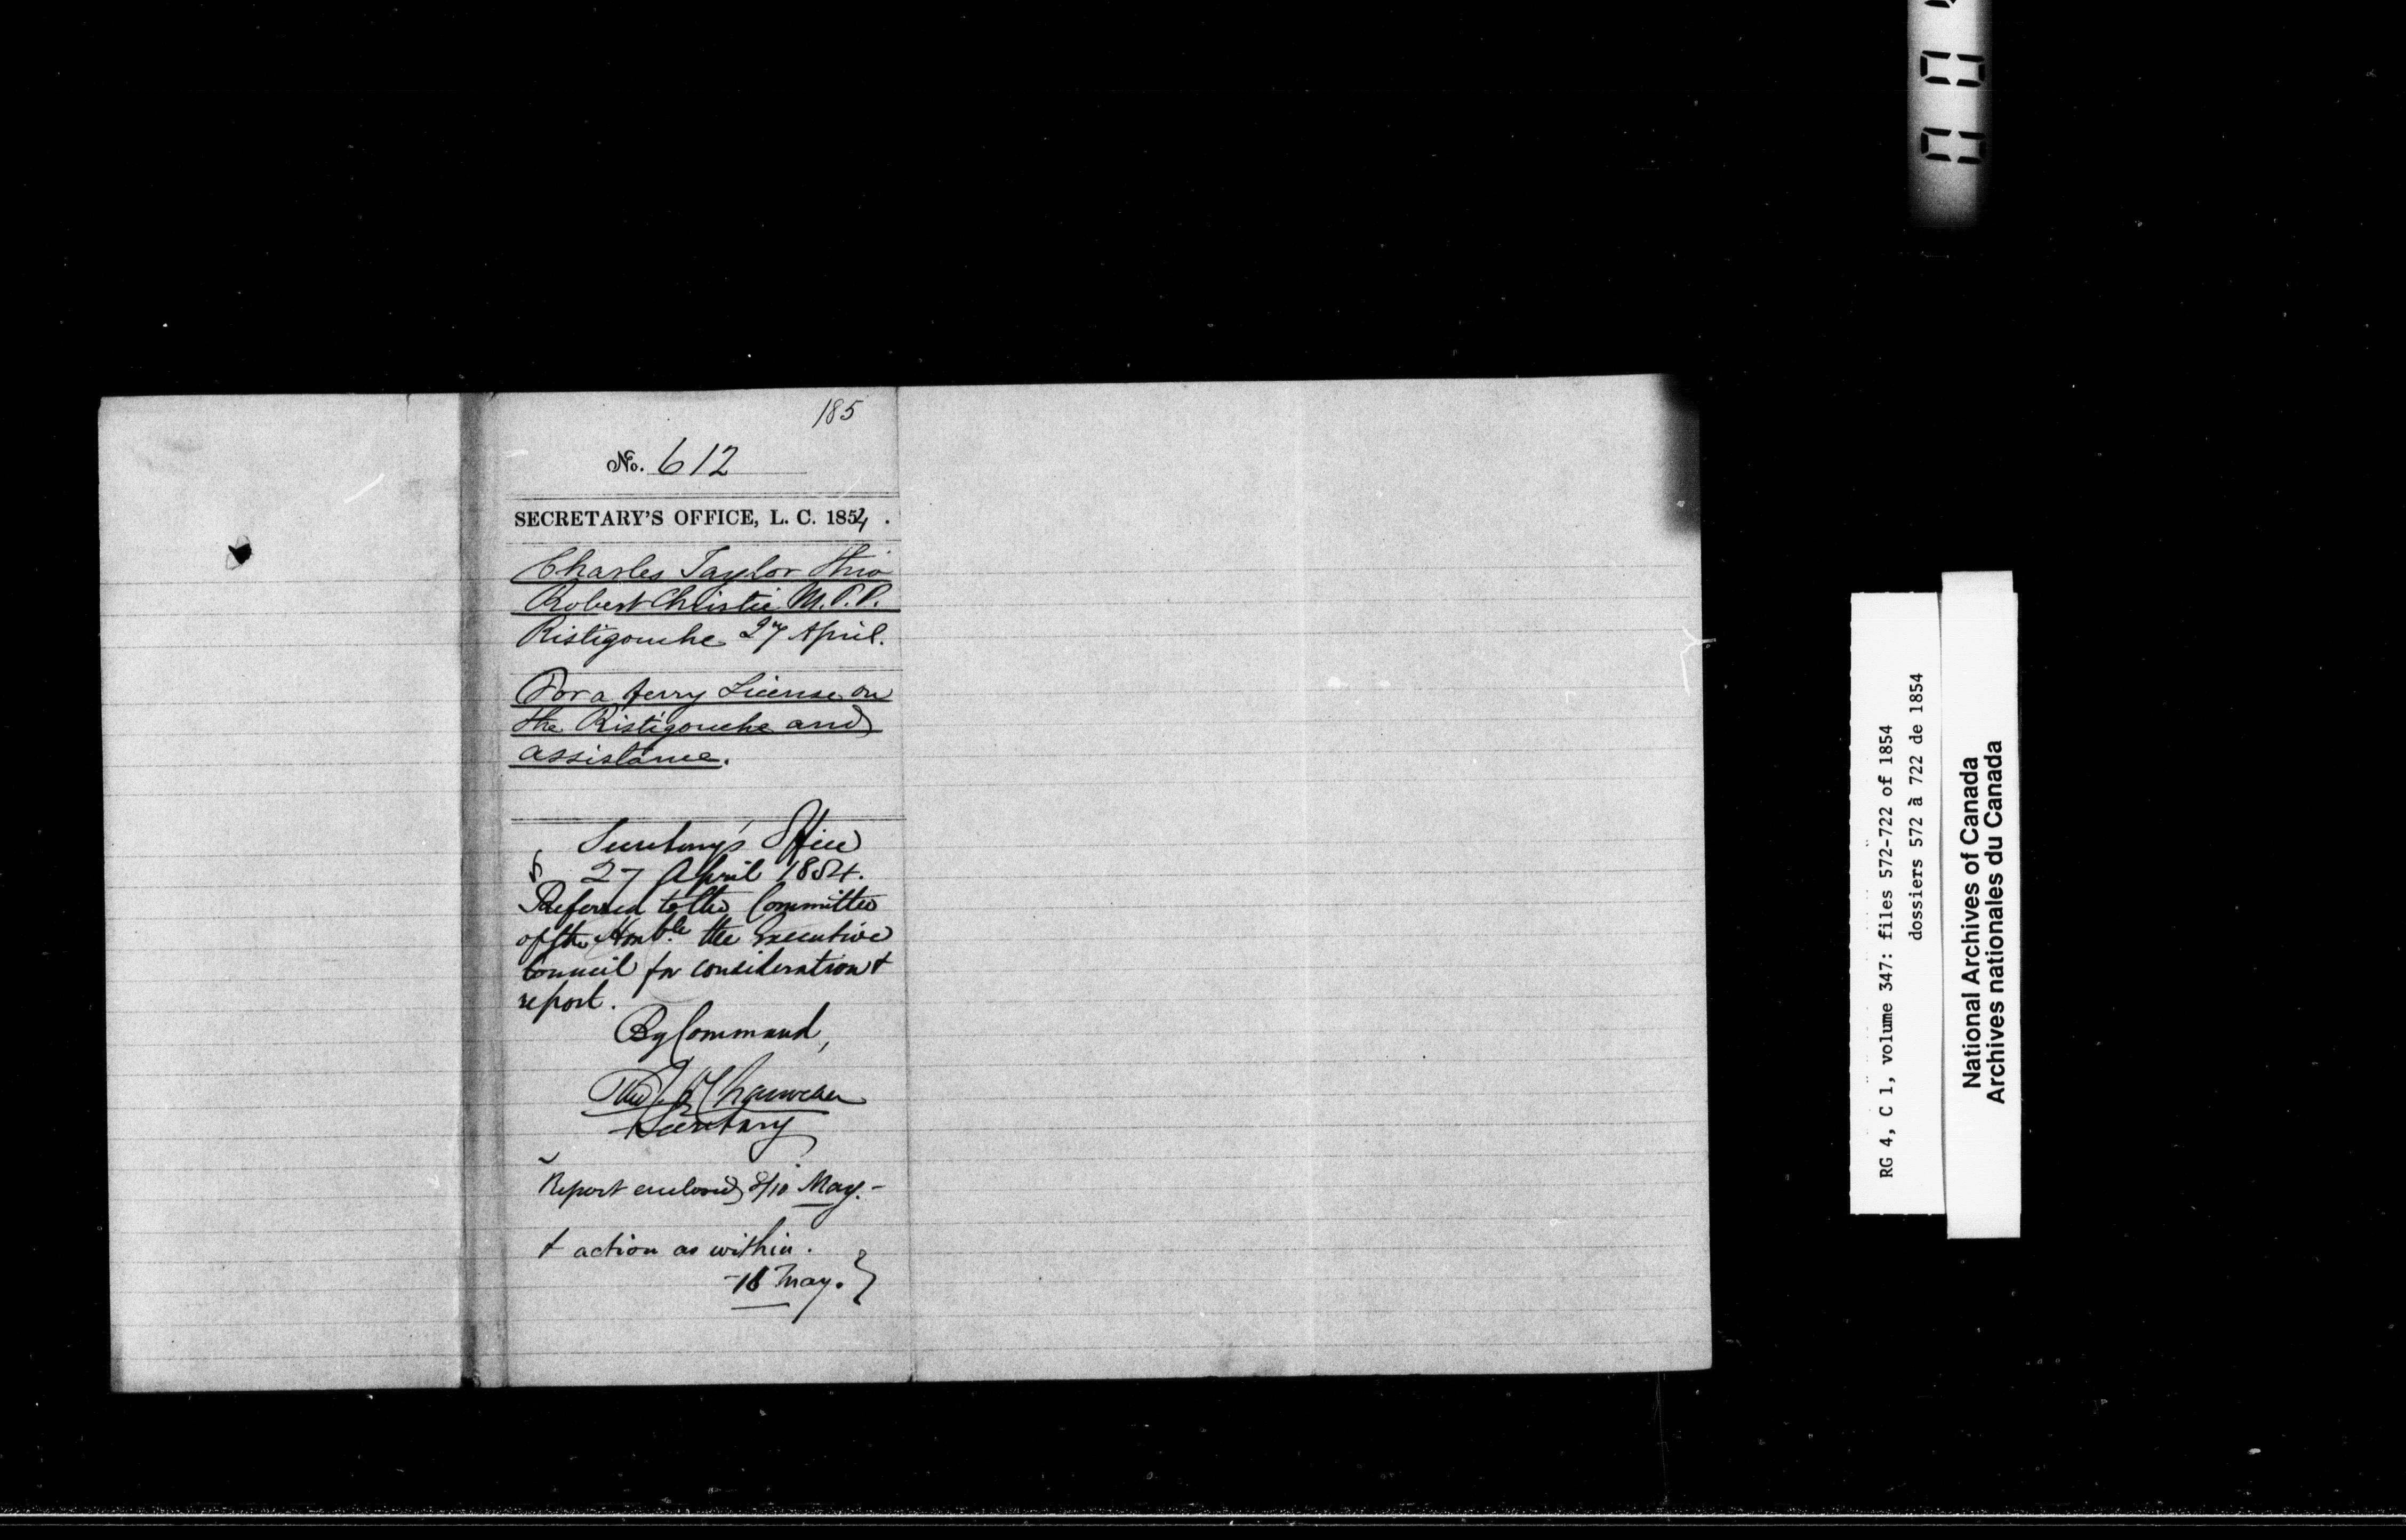 185
No. 612
SECRETARY'S OFFICE, L. C. 1854.
Charles Taylor thro
Robert Christie M.P.P.
Ristigouche 27 April.
For a ferry License on
the Ristigouche and
assistance.
Secretary's Office
27 April 1854.
Referred to the Committee
of the Honble. the Executive
Council for consideration &
report.
By Command,
Chauveau
Secretary
Report enclosed 8/10 May.-
& action as within.
-16 May. }
RG 4, C 1, volume 347: files 572-722 of 1854
dossiers 572 à 722 de 1854
National Archives of Canada
Archives nationales du Canada